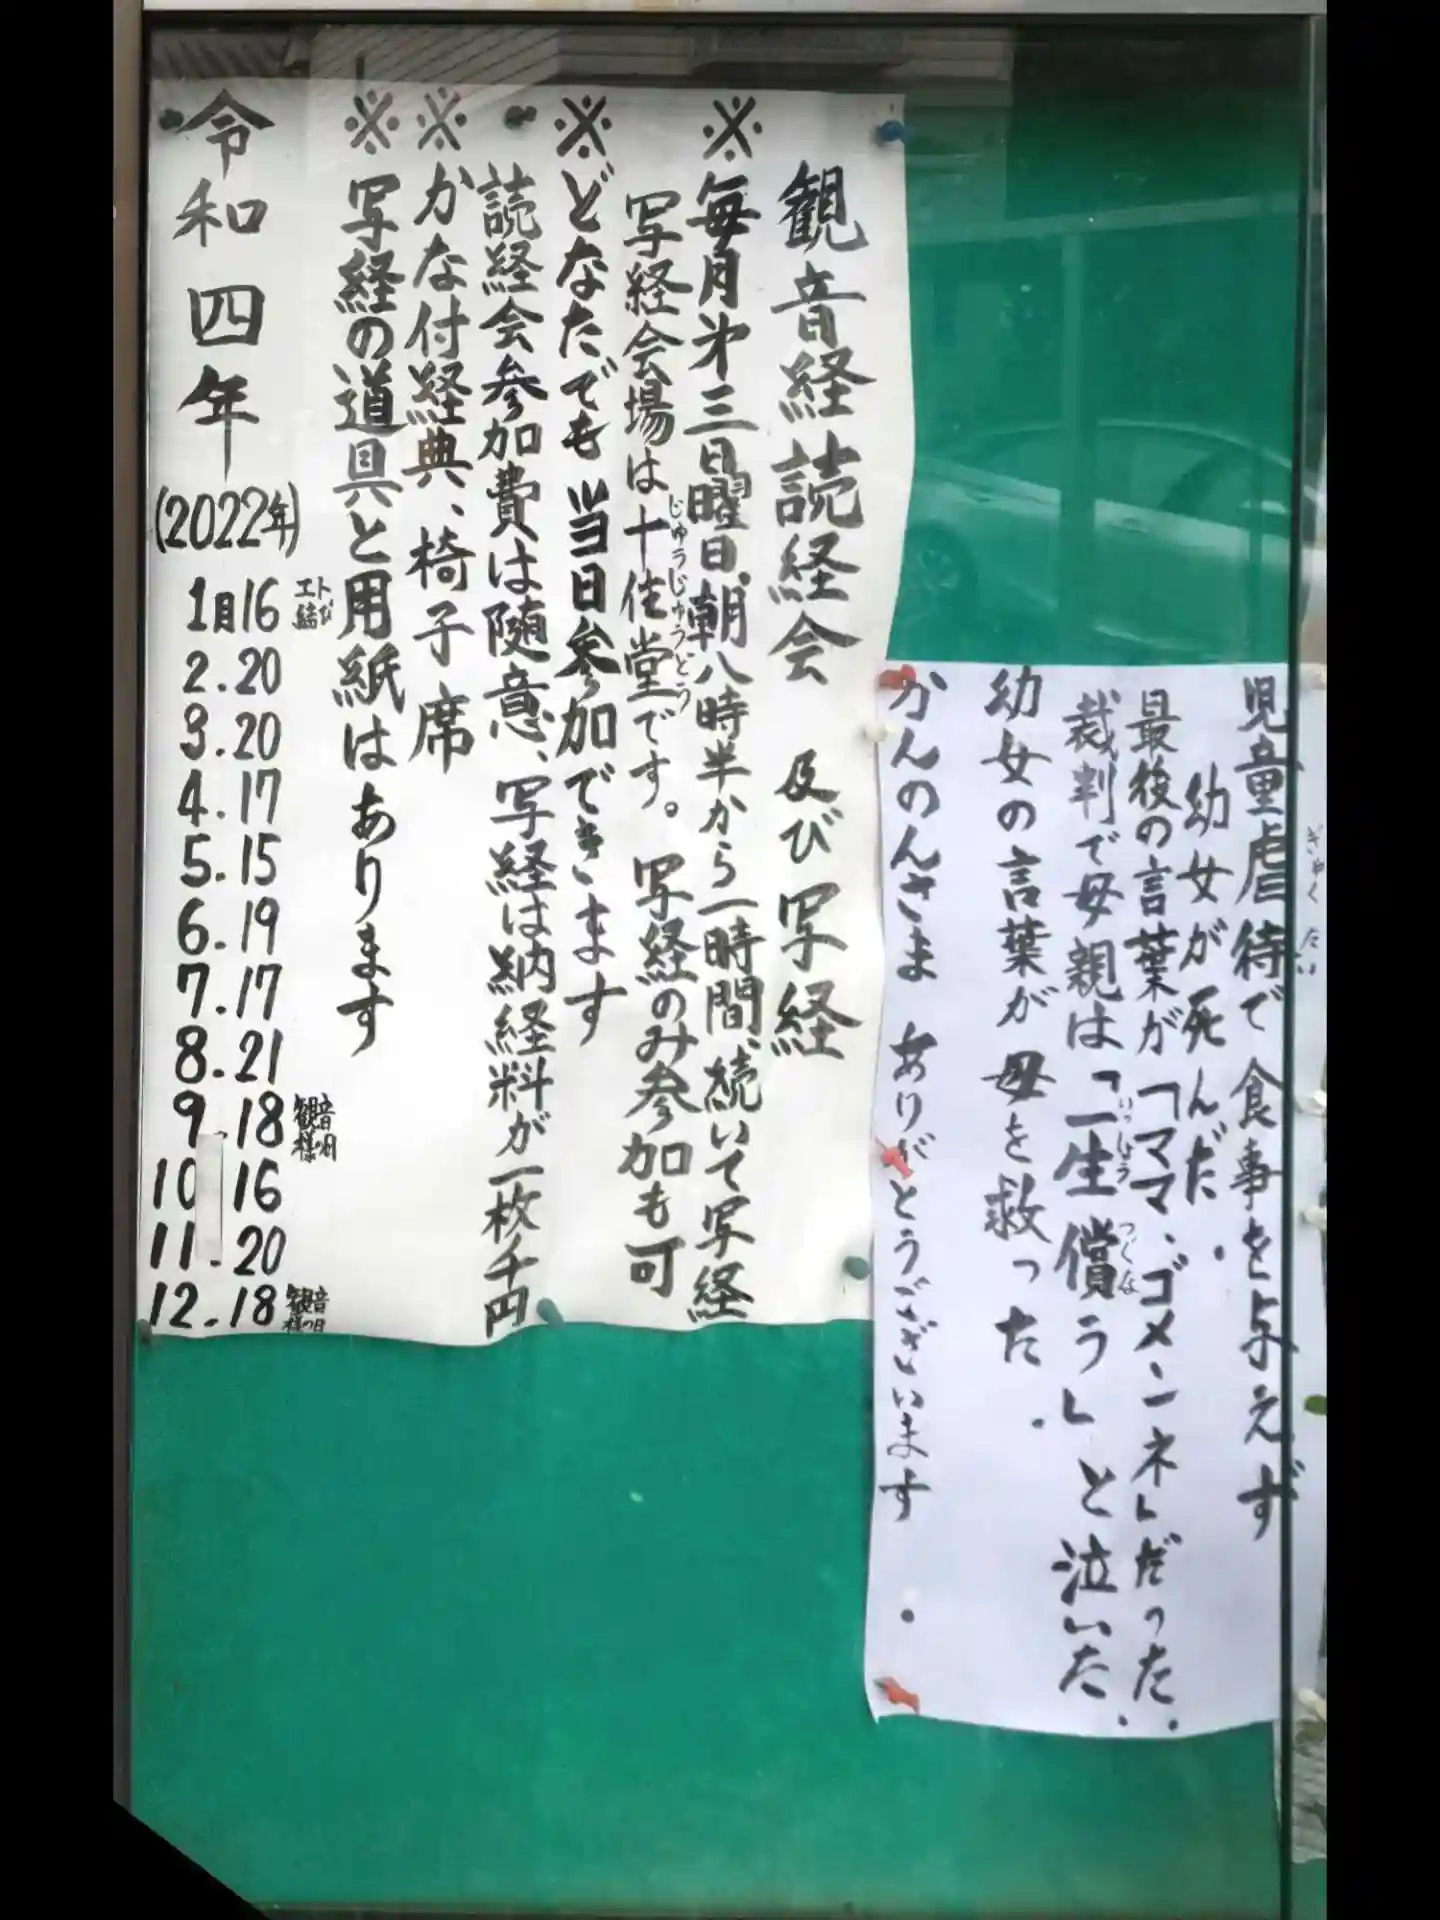 観音経読経会 及び写経
※毎月第三日曜日、朝八時半から一時間、続いて写経
写経会場は十住堂です。写経のみ参加も可
じゅうじゅうどう
※どなたでも当日参加できます
読経会参加費は随意、写経は納経料が一枚千円
※かな付経典、椅子席
※写経の道具と用紙はあります
令和四年
(2022年)
1月16
2.20
3.20
4.17
5.15
6.19
7.17
8.21
9.18 観音様の日
10 16
11.20
12.18 観音様の日
児童虐待で食事を与えず
ぎゃくたい
幼女が死んだ.
最後の言葉が「ママ、ゴメンネ」だった.
裁判で母親は「一生償う」と泣いた.
いっしょう つぐな
幼女の言葉が母を救った.
かんのんさま ありがとうございます.